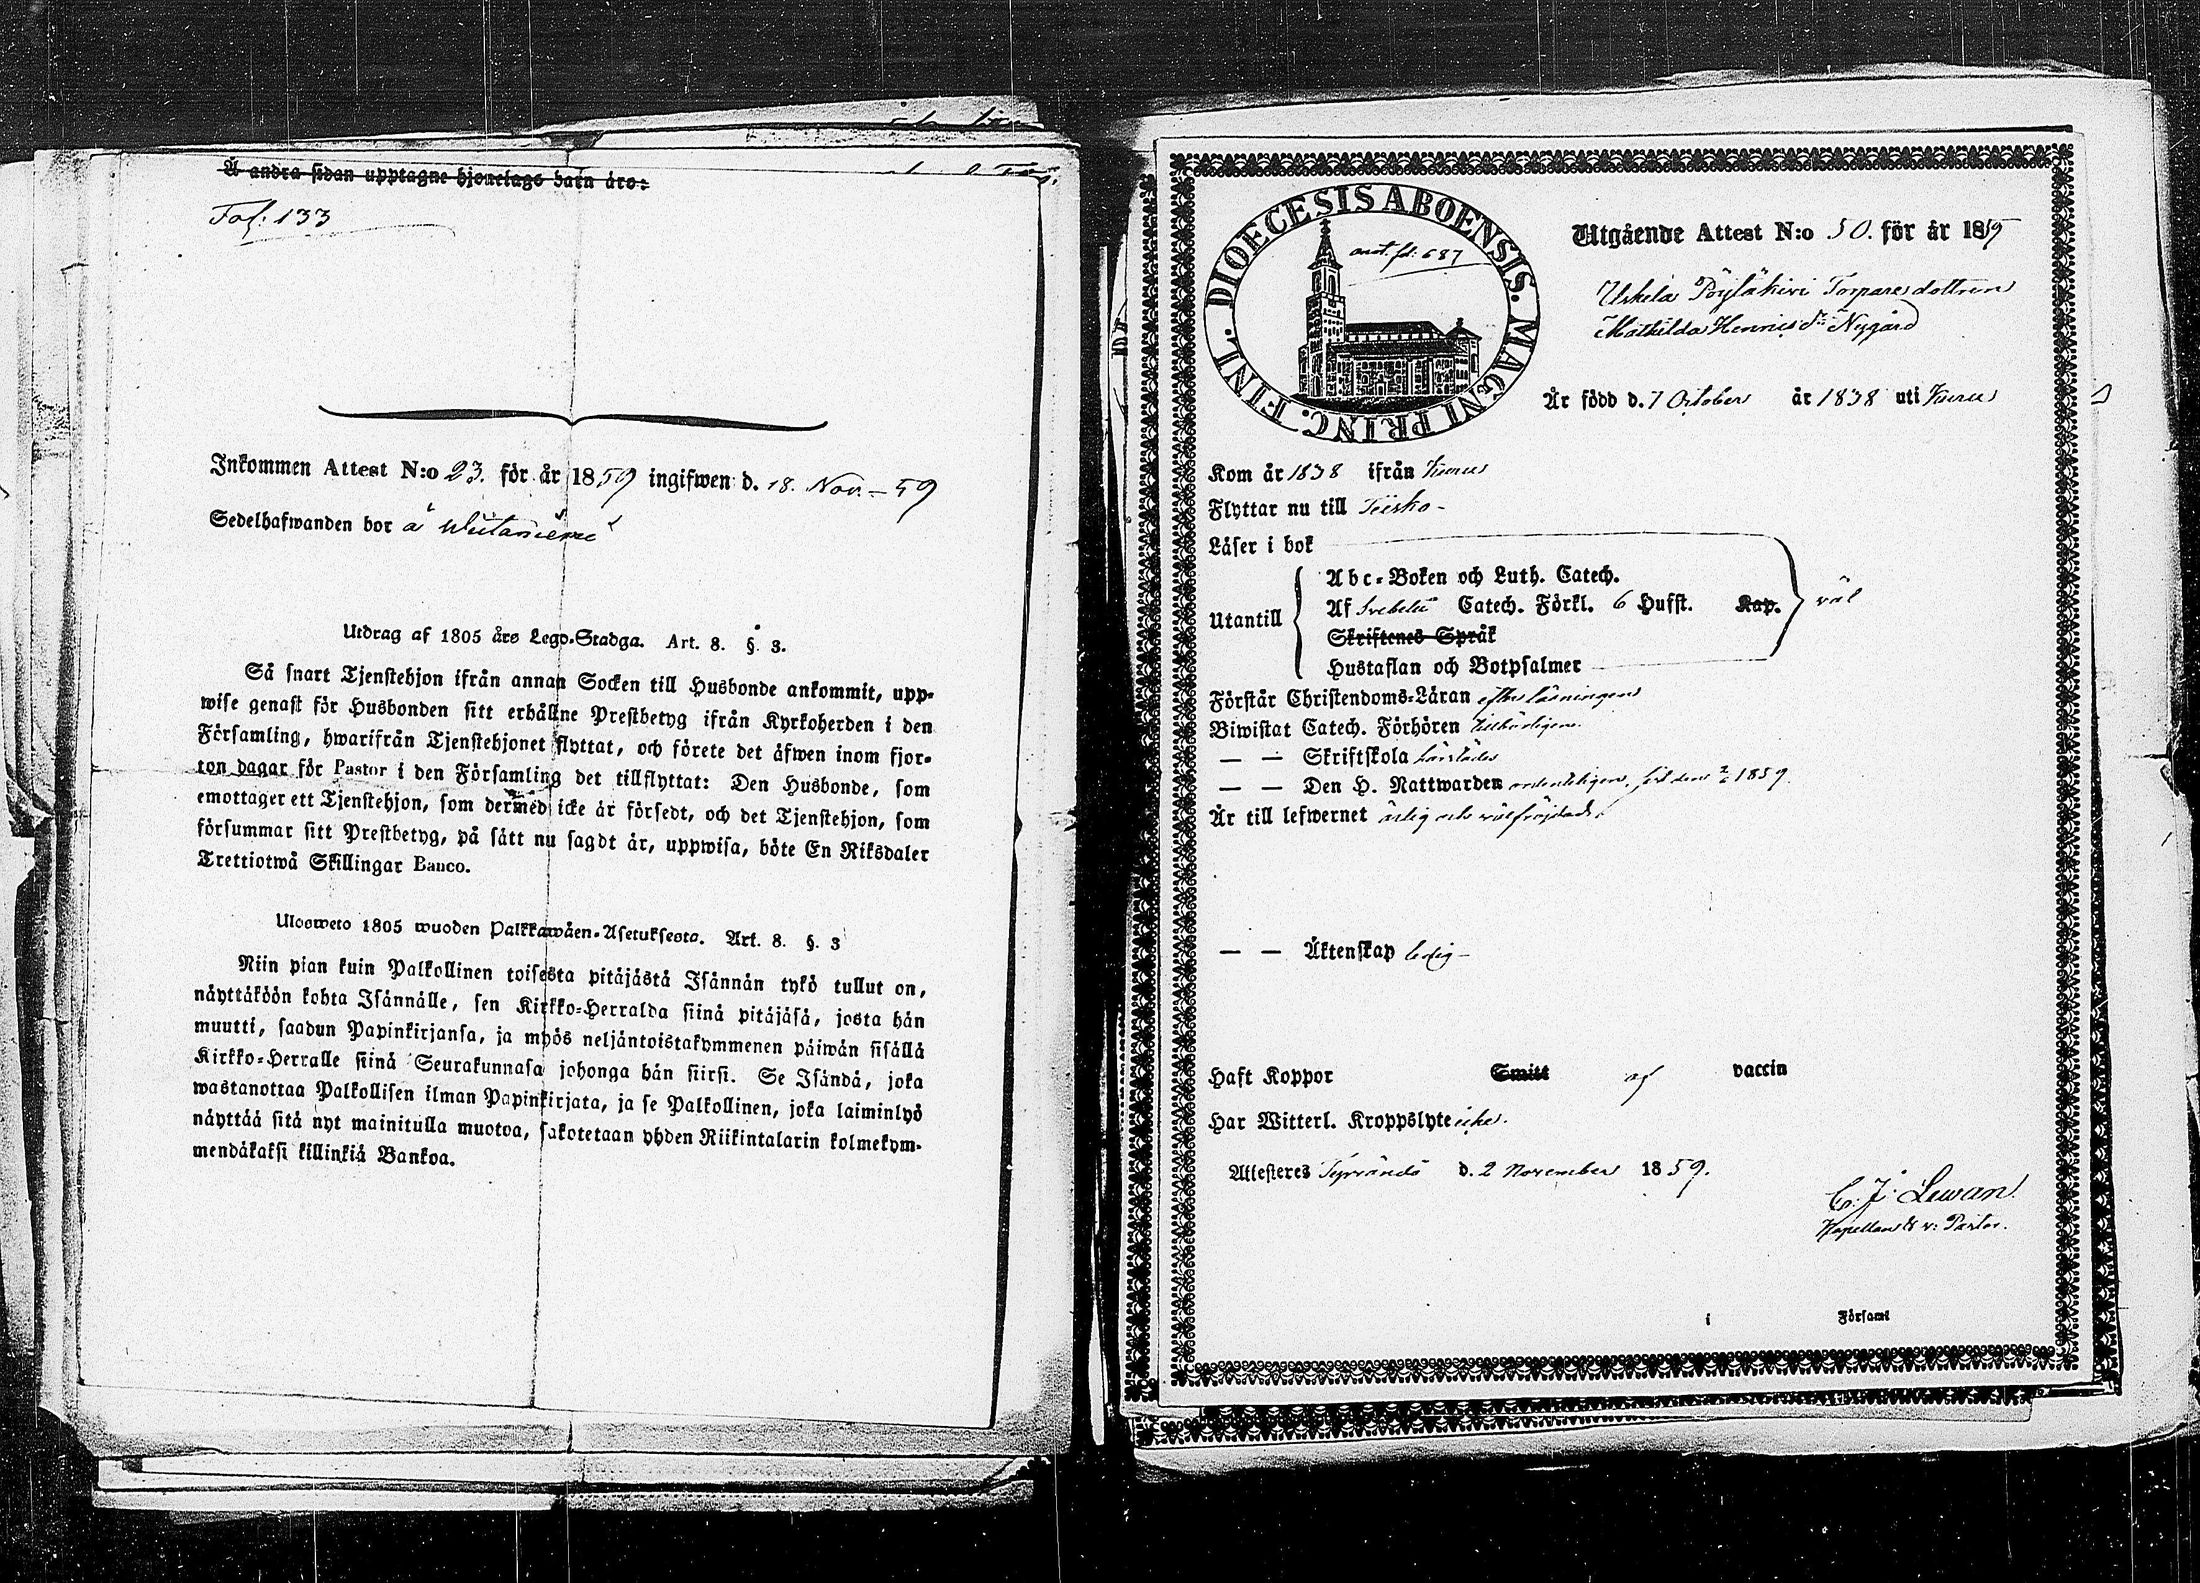 Å andra sidan upptagne hjonelags barn äro:
Fol: 133
Inkommen Attest N:o 23. för år 1859 ingifwen d. 18. Nov. - 59
Sedelhafwanden bor å
Utdrag af 1805 års Lego-Stadga. Art. 8. §. 3.
Så snart Tjenstehjon ifrån annan Socken till Husbonde ankommit, upp-
wise genast för Husbonden sitt erhållne Prestbetyg ifrån Kyrkoherden i den
Församling, hwarifrån Tjenstehjonet flyttat, och förete det äfwen inom fjor-
ton dagar för Pastor i den Församling det tillflyttat: Den Husbonde, som
emottager ett Tjenstehjon, som dermed icke är försedt, och det Tjenstehjon, som
försummar sitt Prestbetyg, på sätt nu sagdt är, uppwisa, böte En Riksdaler
Trettiotwå Skillingar Banco.
Ulosweto 1805 wuoden Palkkawäen-Asetuksesta. Art. 8. §. 3
Niin pian kuin Palkollinen toisesta pitäjästä Isännän tykö tullut on,
näyttäköön kohta Isännälle, sen Kirkko-Herralda siinä pitäjäsä, josta hän
muutti, saadun Papinkirjansa, ja myös neljäntoistakymmenen päiwän sisällä
Kirkko-Herralle siinä Seurakunnasa johonga hän siirsi. Se Isändä, joka
wastanottaa Palkollisen ilman Papinkirjata, ja se Palkollinen, joka laiminlyö
näyttää sitä nyt mainitulla muotoa, sakotetaan yhden Riikintalarin kolmekym-
mendäkaksi killinkiä Bankoa.
DIOECESIS ABOENSIS. MAGNI PRINC. FINL.
ant. fol: 687
Utgående Attest N:o 50. för år 1859
Uskela Pöyläkivi Torparedottren
Mathilda Henricsdr Nygård
Är född d. 7 October år 1838 uti Kuru
Kom år 1838 ifrån Kuru
Flyttar nu till Teisko -
Läser i bok
Utantill
Abc-Boken och Luth. Catech.
Af Svebelii Catech. Förkl. 6 Hufst. Kap.
väl
Skriftenes Språk
Hustaflan och Botpsalmer
Förstår Christendoms-Läran efter läsningen
Biwistat Catech. Förhören tillbörligen
— — Skriftskola härstädes
— — Den H. Nattwarden ordenteligen, sist den 1859.
Är till lefwernet ärlig och välfrejdad.
— — Äktenskap ledig -
Haft Koppor Smitt af vaccin
Har Witterl. Kroppslyte icke.
Attesteres Tyrvändö d. 2 November 1859.
C. J. Lewan
Kapellan & v: Pastor.
i Församl